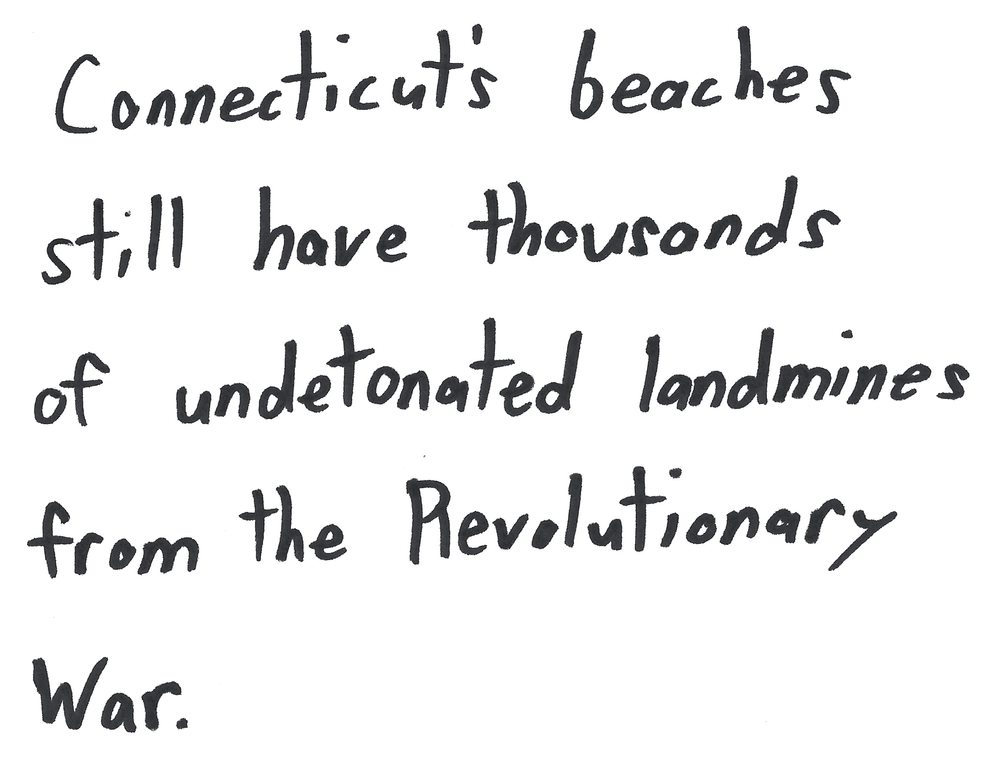 Connecticut's beaches
still have thousands
of undetonated landmines
from the Revolutionary
War.